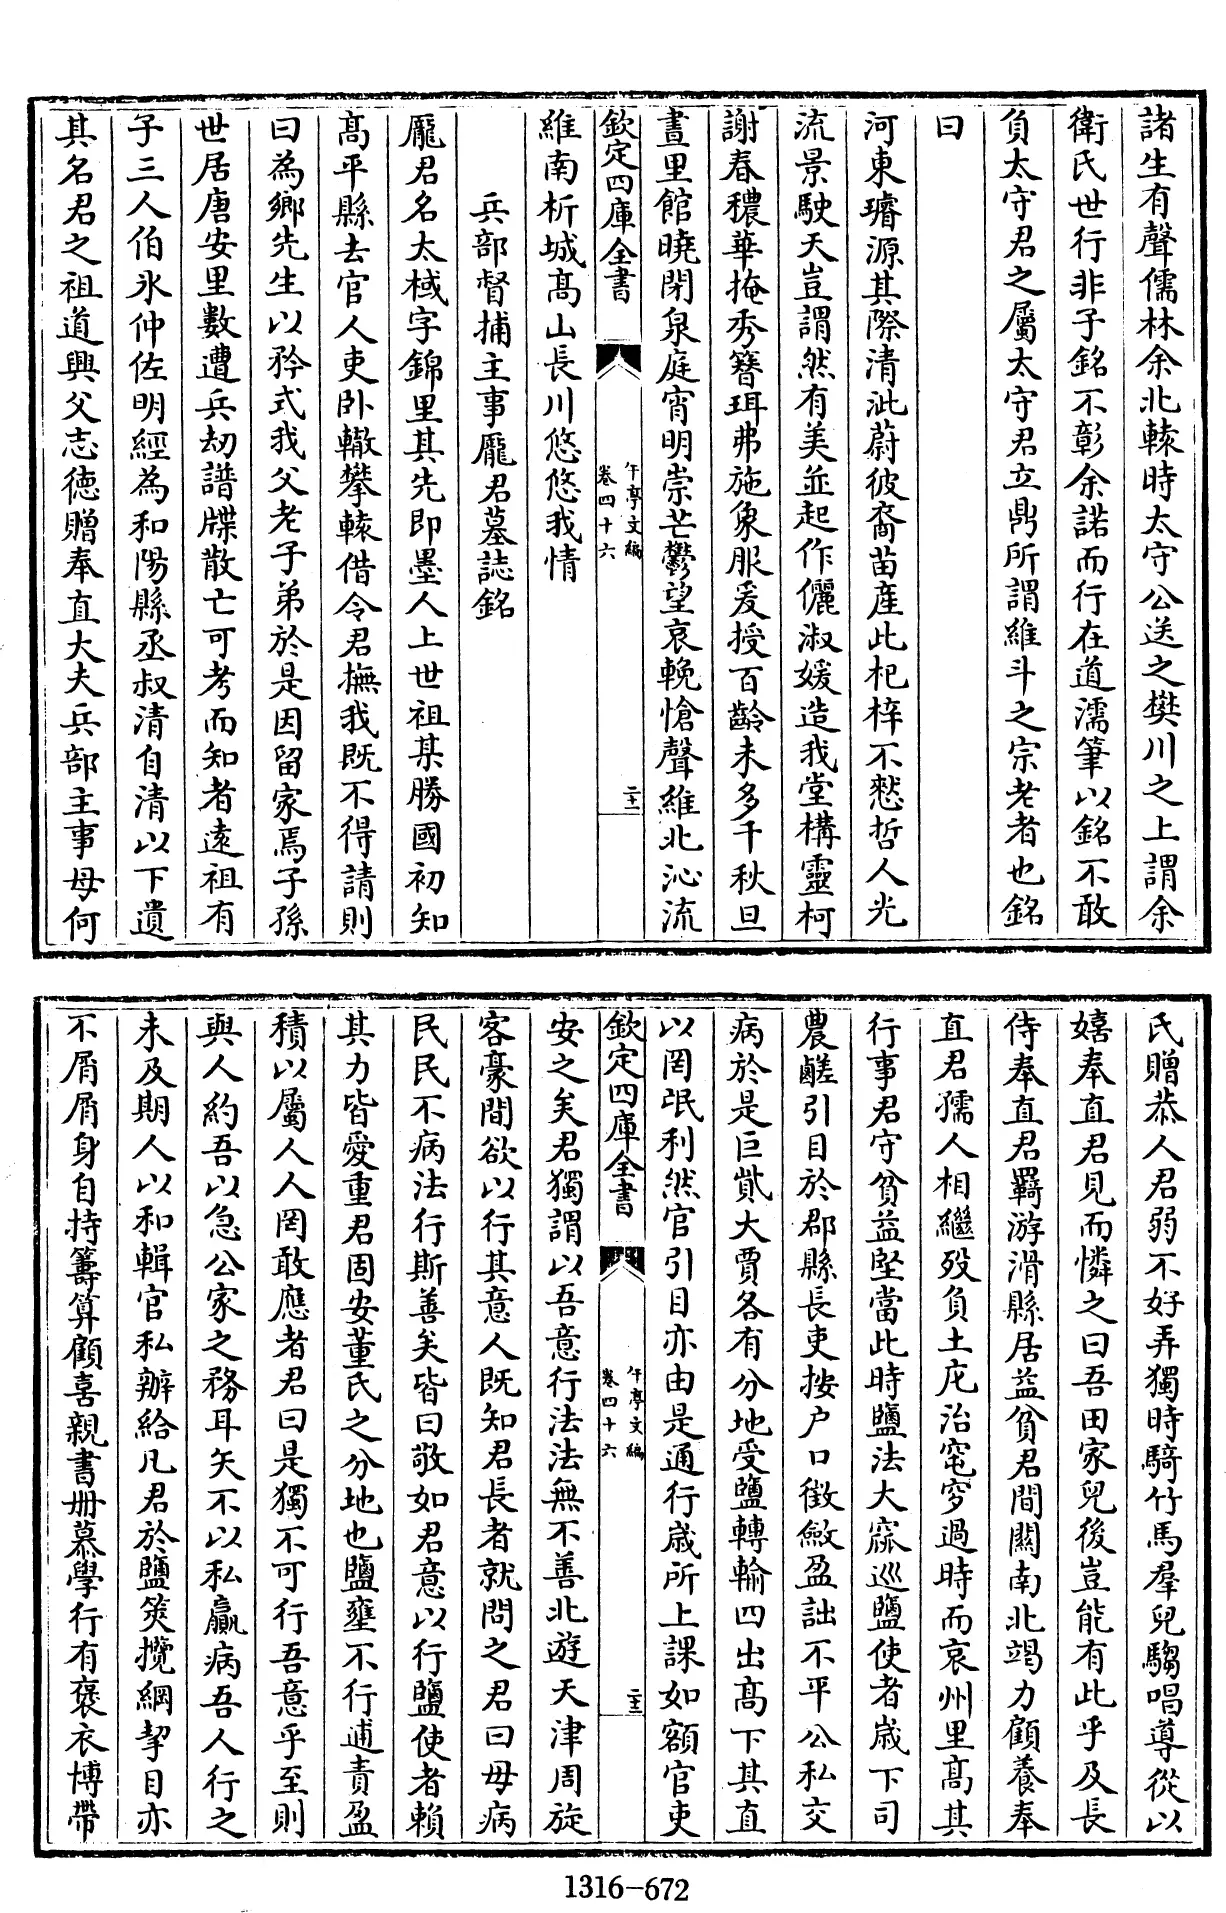 諸生有聲儒林余北轅時太守公送之樊川之上謂余
衛氏世行非子銘不彰余諾而行在道濡筆以銘不敢
負太守君之屬太守君立鼎所謂維斗之宗老者也銘
曰
河東璿源其際清泚蔚彼裔苗産此杞梓不憖哲人光
流景駛天豈謂然有美並起作儷淑媛造我堂構靈柯
謝春穠華掩秀簪珥弗施象服爰授百齡未多千秋旦
晝里館曉閉泉庭宵明崇芒鬱望哀輓愴聲維北沁流
欽定四庫全書
午亭文編
卷四十六
二十二
維南析城髙山長川悠悠我情
兵部督捕主事龎君墓誌銘
龎君名太棫字錦里其先即墨人上世祖某勝國初知
髙平縣去官人吏卧轍攀轅借令君撫我既不得請則
曰為鄉先生以矜式我父老子弟於是因留家焉子孫
世居唐安里數遭兵刼譜牒散亡可考而知者逺祖有
子三人伯氷仲佐明經為和陽縣丞叔清自清以下遺
其名君之祖道興父志德贈奉直大夫兵部主事母何
氏贈恭人君弱不好弄獨時騎竹馬羣兒騶唱導從以
嬉奉直君見而憐之曰吾田家兒後豈能有此乎及長
侍奉直君羈游滑縣居益貧君間關南北竭力顧養奉
直君孺人相繼殁負土庀治窀穸過時而哀州里髙其
行事君守貧益堅當此時鹽法大窳巡鹽使者歳下司
農鹺引目於郡縣長吏按户口徴斂盈詘不平公私交
病於是巨貲大賈各有分地受鹽轉輸四出髙下其直
以罔氓利然官引目亦由是通行歳所上課如額官吏
欽定四庫全書
午亭文編
卷四十六
二十三
安之矣君獨謂以吾意行法法無不善北遊天津周旋
客豪間欲以行其意人既知君長者就問之君曰毋病
民民不病法行斯善矣皆曰敬如君意以行鹽使者賴
其力皆愛重君固安董氏之分地也鹽壅不行逋責盈
積以屬人人罔敢應者君曰是獨不可行吾意乎至則
與人約吾以急公家之務耳矢不以私贏病吾人行之
未及期人以和輯官私辦給凡君於鹽筴攬綱挈目亦
不屑屑身自持籌算顧喜親書册慕學行有褒衣博帶
1316-672